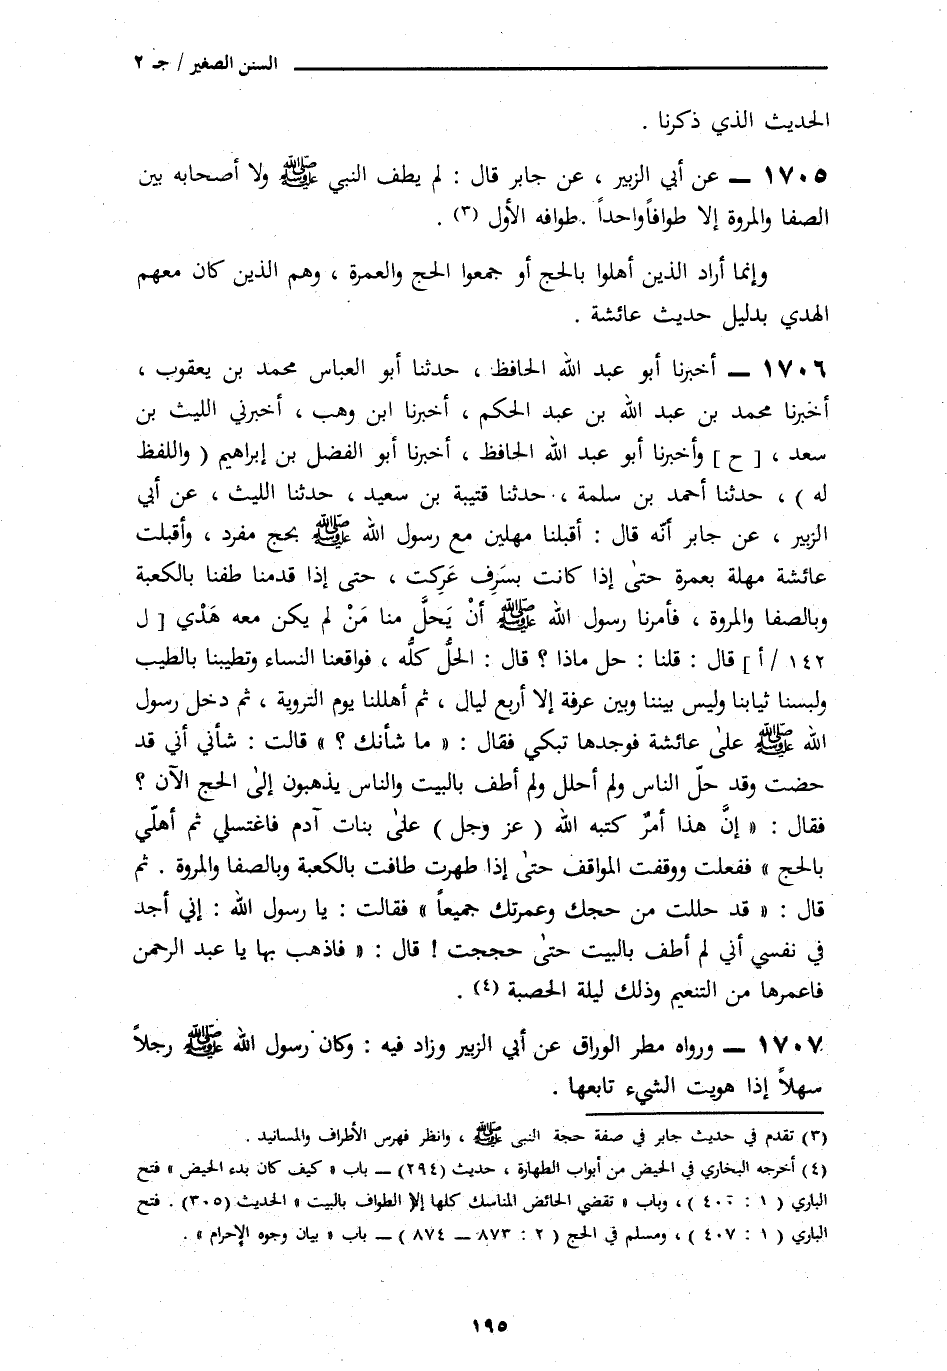 السنن الصغير / جـ ٢
الحديث الذي ذكرنا .
١٧٠٥ ــ عن أبي الزبير ، عن جابر قال : لم يطف النبي ﷺ ولا أصحابه بين
الصفا والمروة إلا طوافاًواحداً . طوافه الأول (٣) .
وإنما أراد الذين أهلوا بالحج أو جمعوا الحج والعمرة ، وهم الذين كان معهم
الهدي بدليل حديث عائشة .
١٧٠٦ ــ أخبرنا أبو عبد الله الحافظ ، حدثنا أبو العباس محمد بن يعقوب ،
أخبرنا محمد بن عبد الله بن عبد الحكم ، أخبرنا ابن وهب ، أخبرني الليث بن
سعد ، [ ح ] وأخبرنا أبو عبد الله الحافظ ، أخبرنا أبو الفضل بن إبراهيم ( واللفظ
له ) ، حدثنا أحمد بن سلمة ، حدثنا قتيبة بن سعيد ، حدثنا الليث ، عن أبي
الزبير ، عن جابر أنّه قال : أقبلنا مهلين مع رسول الله ﷺ بحج مفرد ، وأقبلت
عائشة مهلة بعمرة حتىٰ إذا كانت بسَرِف عَرِكت ، حتى إذا قدمنا طفنا بالكعبة
وبالصفا والمروة ، فأمرنا رسول الله ﷺ أنْ يَحلَّ منا مَنْ لم يكن معه هَدْي [ ل
١٤٢ / أ ] قال : قلنا : حل ماذا ؟ قال : الحلُّ كلُّه ، فواقعنا النساء وتطيبنا بالطيب
ولبسنا ثيابنا وليس بيننا وبين عرفة إلا أربع ليال ، ثم أهللنا يوم التروية ، ثم دخل رسول
الله ﷺ علىٰ عائشة فوجدها تبكي فقال : « ما شأنك ؟ » قالت : شأني أني قد
حضت وقد حلّ الناس ولم أحلل ولم أطف بالبيت والناس يذهبون إلىٰ الحج الآن ؟
فقال : « إنَّ هذا أمرٌ كتبه الله ( عز وجل ) علىٰ بنات آدم فاغتسلي ثم أهلّي
بالحج » ففعلت ووقفت المواقف حتىٰ إذا طهرت طافت بالكعبة وبالصفا والمروة . ثم
قال : « قد حللت من حجك وعمرتك جميعاً » فقالت : يا رسول الله : إني أجد
في نفسي أني لم أطف بالبيت حتىٰ حججت ! قال : « فاذهب بها يا عبد الرحمن
فاعمرها من التنعيم وذلك ليلة الحصبة (٤) .
١٧٠٧ ــ ورواه مطر الوراق عن أبي الزبير وزاد فيه : وكان رسول الله ﷺ رجلاً
سهلاً إذا هويت الشيء تابعها .
(٣) تقدم في حديث جابر في صفة حجة النبى ﷺ ، وانظر فهرس الأطراف والمسانيد .
(٤) أخرجه البخاري في الحيض من أبواب الطهارة ، حديث (٢٩٤) ــ باب « كيف كان بدء الحيض » فتح
الباري ( ١ : ٤٠٠ ) ، وباب « تقضي الحائض المناسك كلها إلا الطواف بالبيت » الحديث (٣٠٥) . فتح
الباري ( ١ : ٤٠٧ ) ، ومسلم في الحج ( ٢ : ٨٧٣ ــ ٨٧٤ ) ــ باب « بيان وجوه الإحرام » .
١٩٥